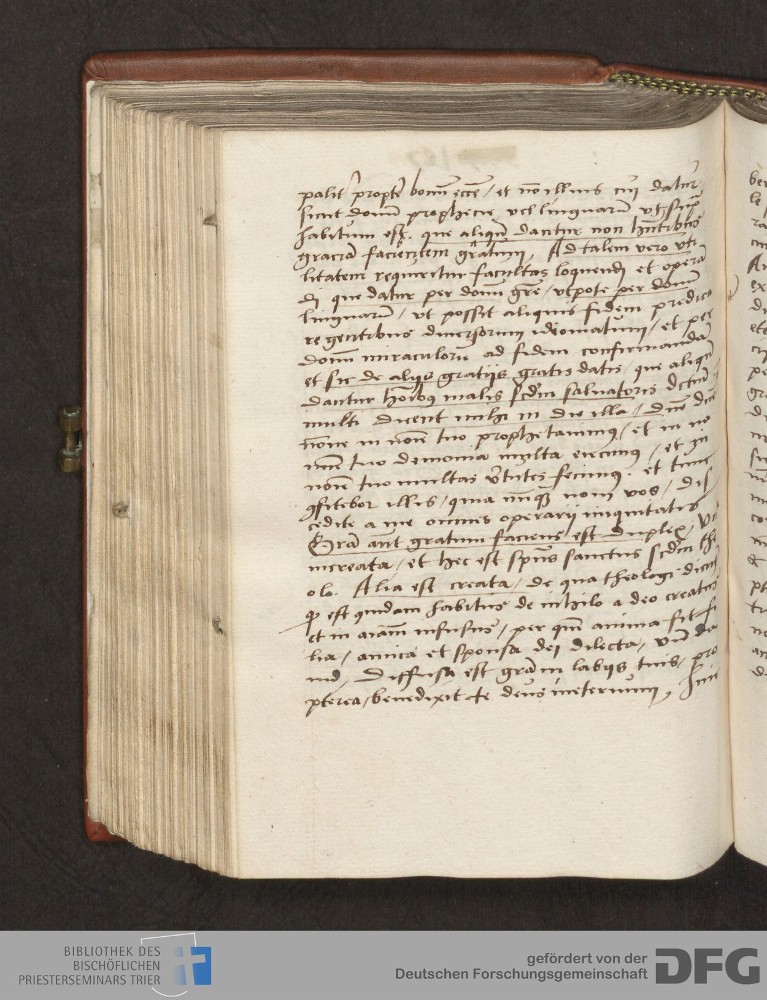 palit propt bonu ecce / et no illius cui datur
sicut donu prophecie vel linguaru vt sup
habitum est. que aliqn dantur non hntibus
gracia facientem gratum, Ad talem vero vti
litatem requiritur facultas loquendi et opera
di que datur per donu gre / vtpote per donu
linguaru / vt possit aliquis fidem predica
re gentibus diuersorum ideomatum / et per
donu miraculoru ad fidem confirmandam
et sic de alijs gratijs gratis datis, que aliqn
dantur hoibus malis scdm saluatoris dictum
multi dicent mihi in die illa / dne dne
nonne in noie tuo prophetauimus / et in no
mine tuo demonia multa eiecimus / et in
noie tuo multas vtutes fecimus. et tunc
gfitebor illis / quia nunqz noui vos / dis
cedite a me omnes operarij iniquitatis
Gra aut gratum faciens est duplex, Vna
increata / et hec est spus sanctus scdm the
olo. Alia est creata / de qua theologi dicunt
qp est quidam habitus de nihilo a deo creatus
et in aiam infusus / per que anima fit fi
lia / amica et sponsa dei dilecta, vn da
uid, Diffusa est gra in labijs tuis, pro
pterea / benedixit te deus ineternum,
BIBLIOTHEK DES
BISCHÖFLICHEN
PRIESTERSEMINARS TRIER
gefördert von der
Deutschen Forschungsgemeinschaft
DFG